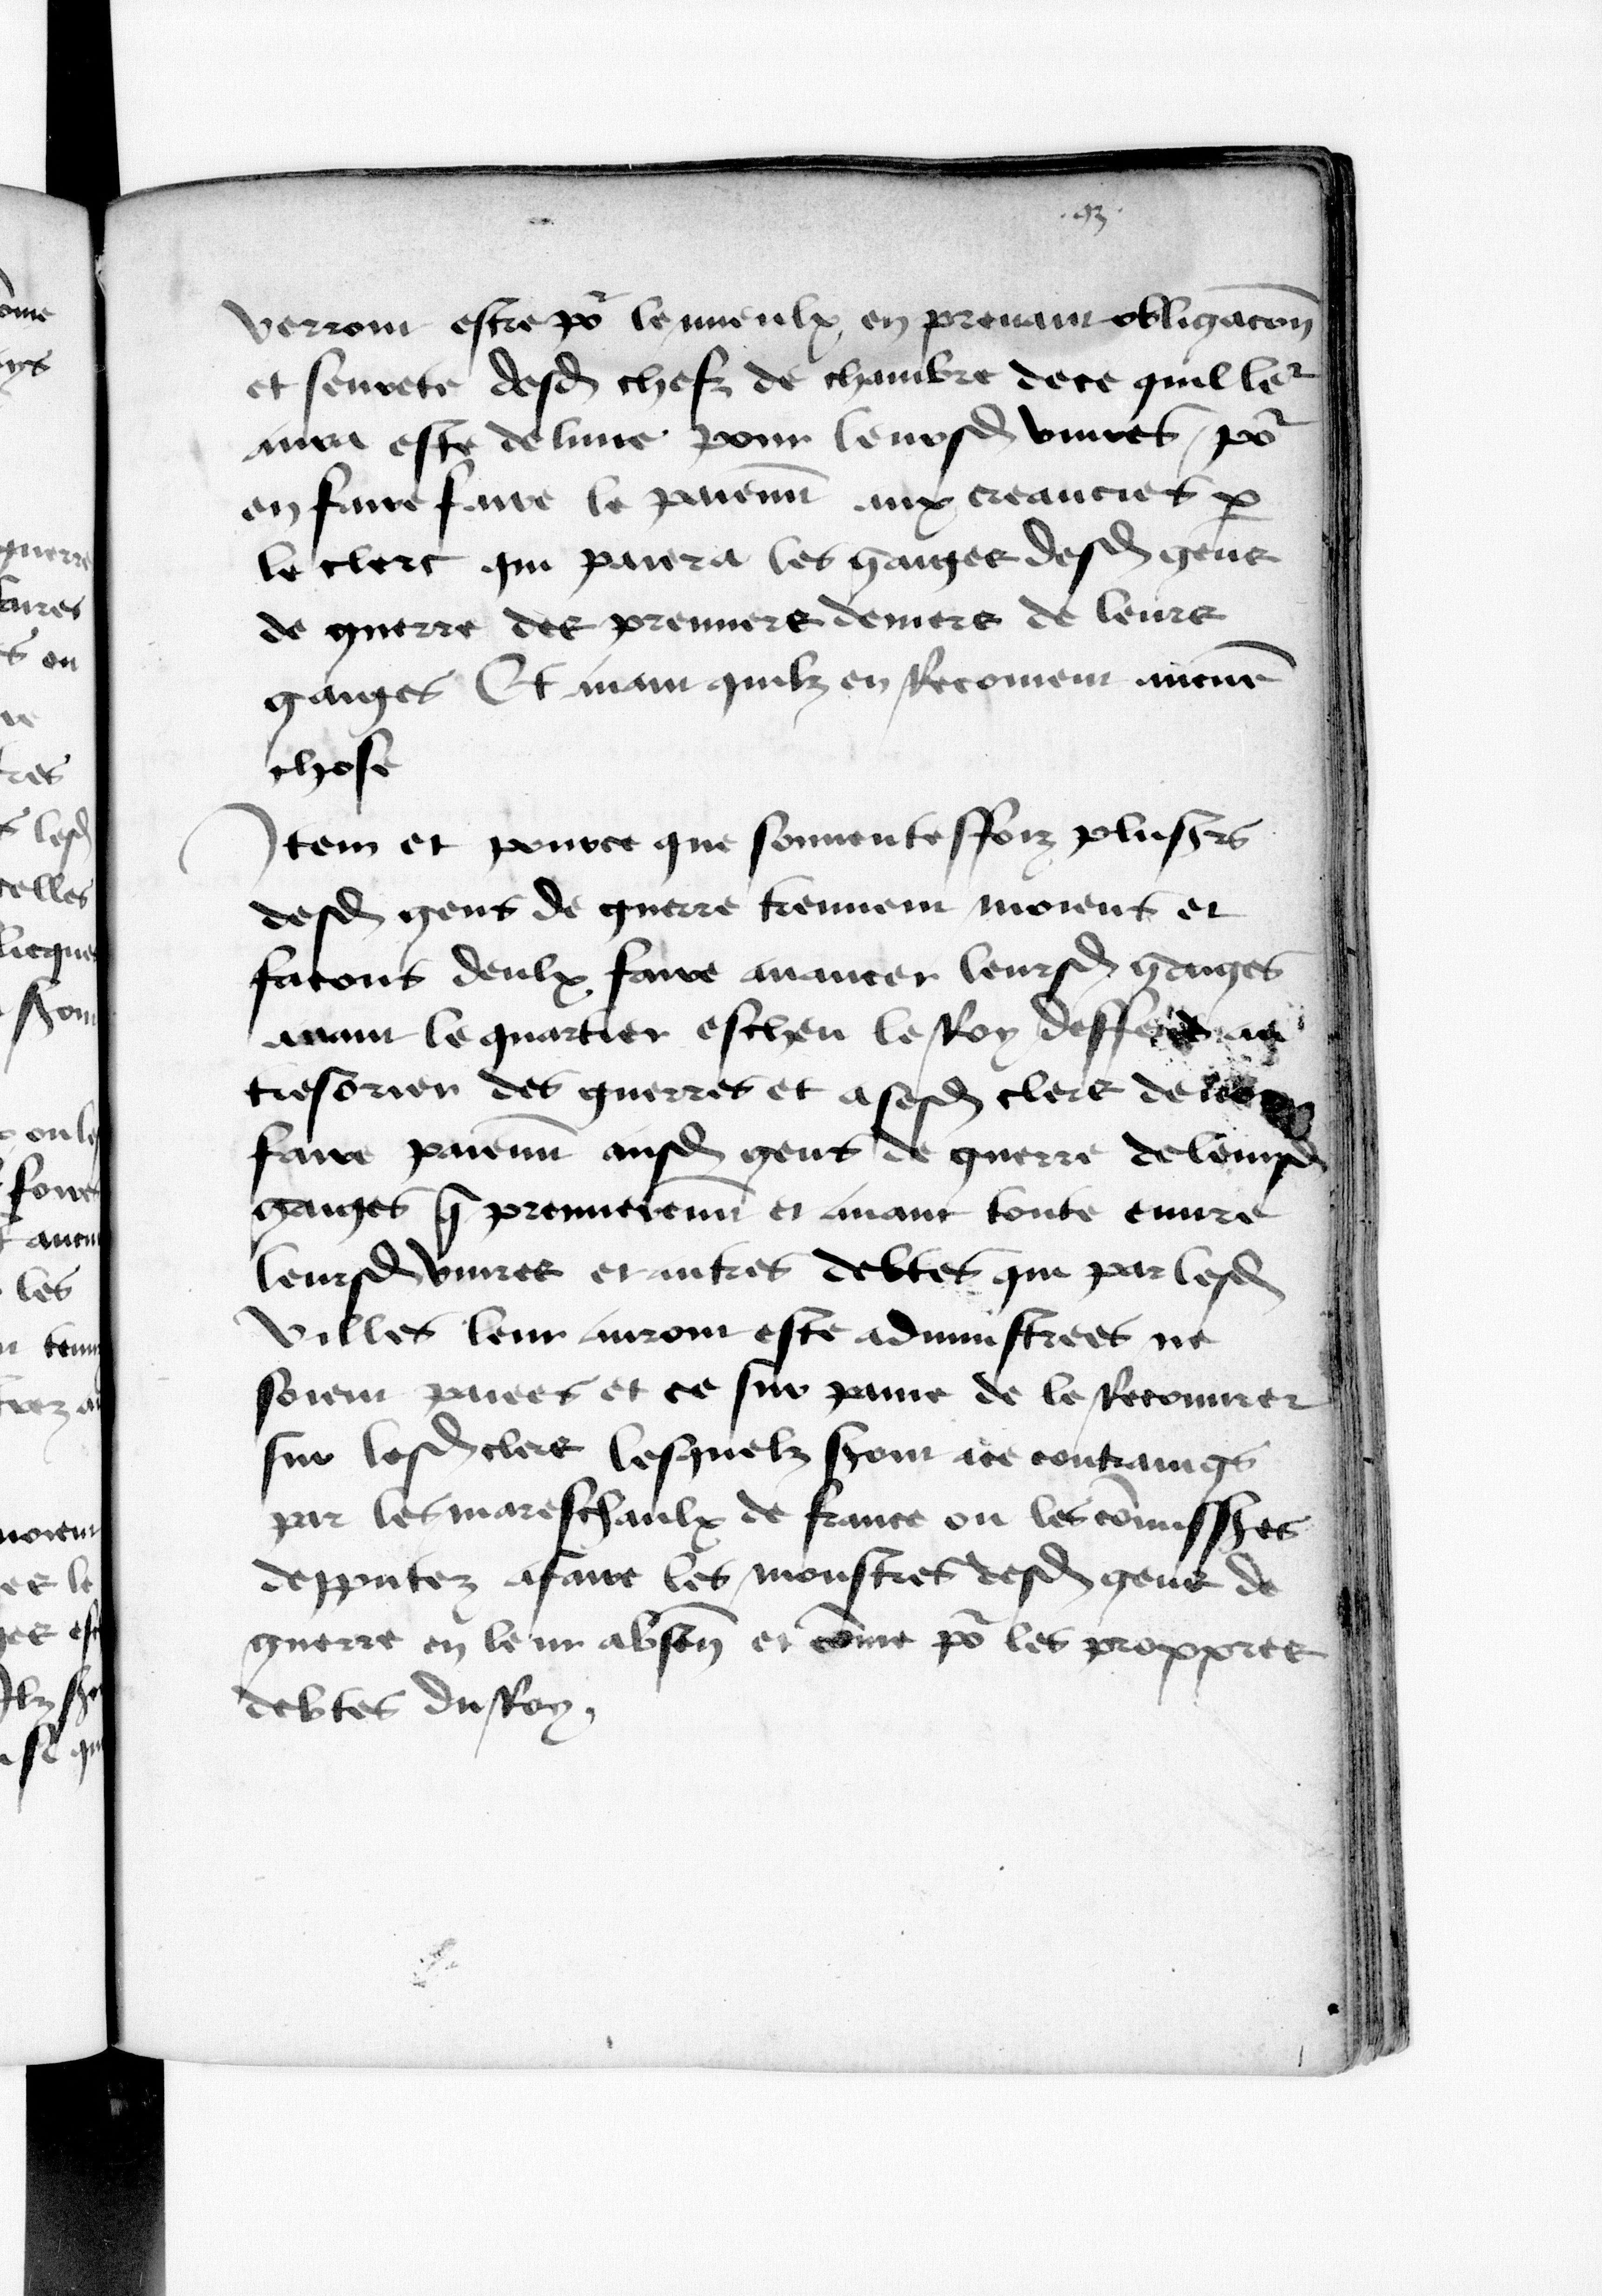 verront estre po^r le mieulx en prenant obligac̄on
et seurete desd chefz de chambre de ce quil le^r
aura este delivre pour leursd vivres / po^r
en faire faire le paiem̄t aux creanciers p̱
le clerc qui paiera les gaiges desd gens
de guerre des premiers deniers de leurs
gaiges Et avant quilz en Recoivent aucun̄e
chose
Item et pource que souventeffoiz plus̃rs
desd gens de guerre treuvent moiens et
facons deulx faire avancer leursd gaiges
avant le quartier escheu le Roy deffend au
tresorier des guerres et a sesd clers de
faire paiem̄t ausd gens de guerre de leursd
gaiges q̄ premierem̄t et avant toute euvre
leursd vivres et autres debtes que par lesd
villes leur auront este administrees ne
soient paiees et ce sur paine de le Recouvrer
sur lesd clers lesquelz s̃ont a ce contraings
par les mareschaulx de france ou les cōmiss̃es
depputez a faire les monstres desd gens de
guerre en leur absen̄ et cōme po^r les proppres
debtes du Roy.